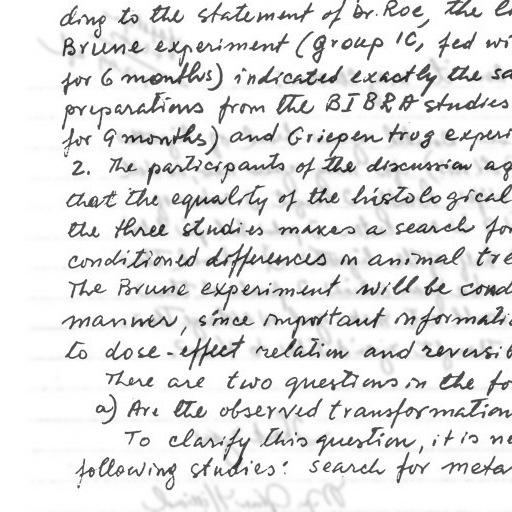 ding to the statement of Dr. Roe, the
Brune experiment (group 1C, fed wi
for 6 months) indicated exactly the sa
preparations from the BIBRA studies
for 9 months) and Griepentrog experi
2. The participants of the discussion ag
that the equality of the histological
the three studies makes a search for
conditioned differences in animal tre
The Brune experiment will be cond
manner, since important informati
to dose-effect relation and reversib
There are two questions in the fo
a) Are the observed transformation
To clarify this question, it is ne
following studies: search for meta